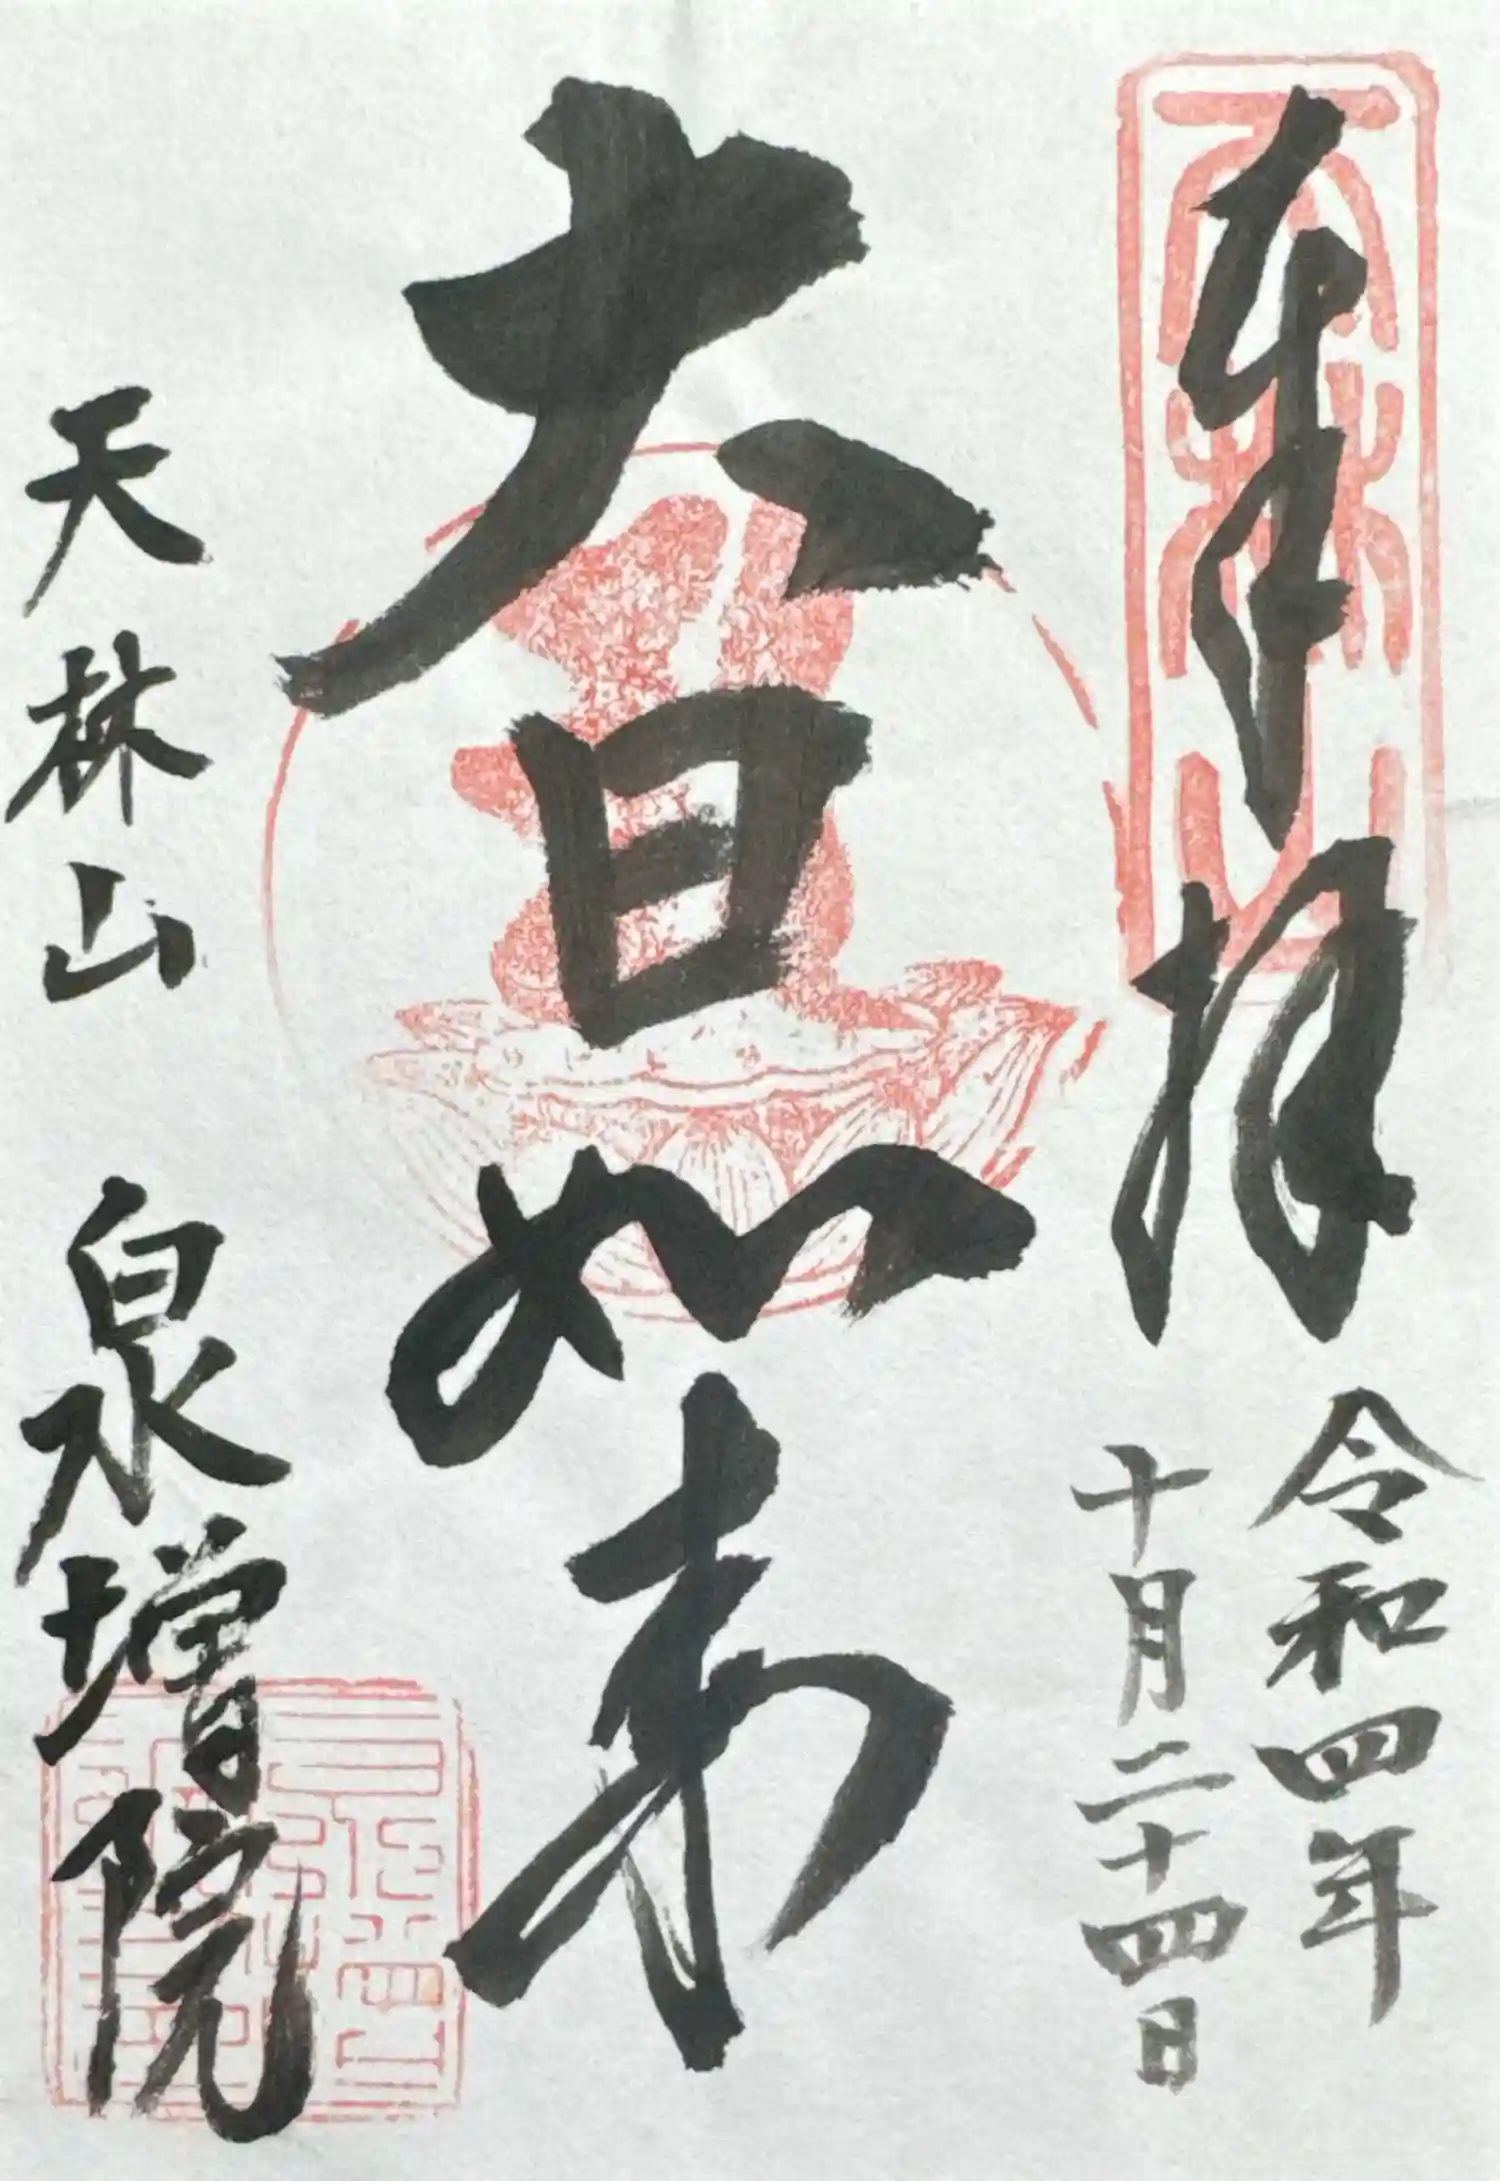 奉拝
令和四年
十月二十四日
大日如来
天林山 泉増院
天林山